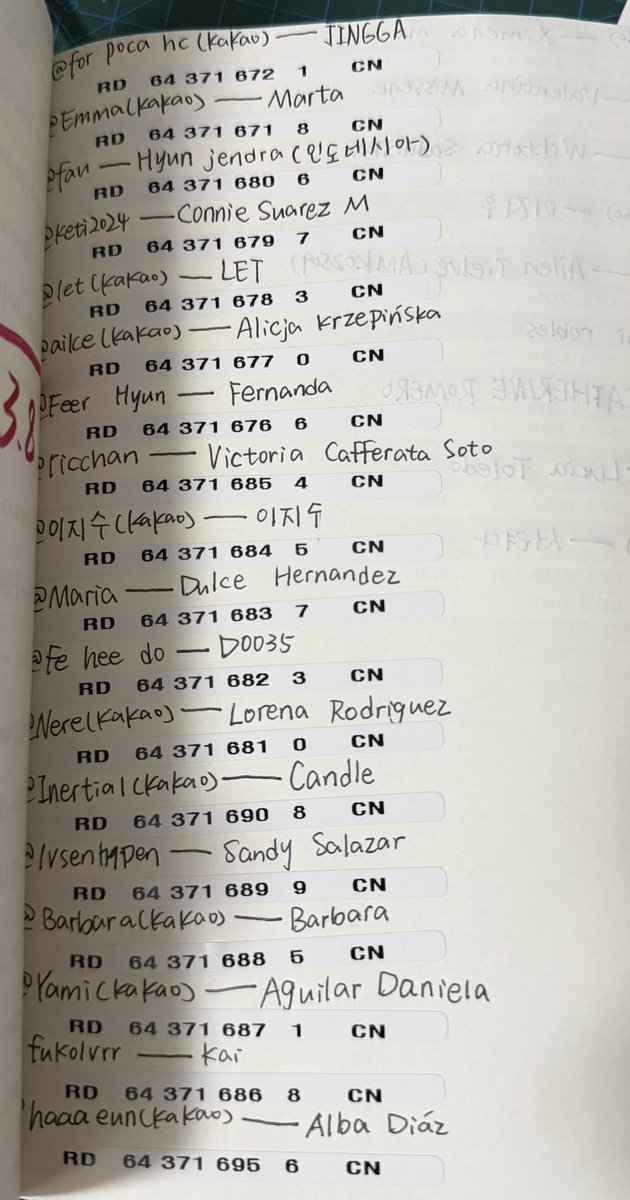 @for poca hc(kakao) — JINGGA
RD 64 371 672 1 CN
@Emma(kakao) — Marta
RD 64 371 671 8 CN
@fan — Hyun jendra (인도네시아)
RD 64 371 680 6 CN
@keti2024 — Connie Suarez M
RD 64 371 679 7 CN
@let(kakao) — LET
RD 64 371 678 3 CN
@ailce(kakao) — Alicja Krzepińska
RD 64 371 677 0 CN
@Feer Hyun — Fernanda
RD 64 371 676 6 CN
@ricchan — Victoria Cafferata Soto
RD 64 371 685 4 CN
@이지수(kakao) — 이지수
RD 64 371 684 5 CN
@Maria — Dulce Hernandez
RD 64 371 683 7 CN
@fe hee do — D0035
RD 64 371 682 3 CN
@Nere(kakao) — Lorena Rodriguez
RD 64 371 681 0 CN
@Inertial(kakao) — Candle
RD 64 371 690 8 CN
@lvsenhypen — Sandy Salazar
RD 64 371 689 9 CN
@Barbara(kakao) — Barbara
RD 64 371 688 5 CN
@Yami(kakao) — Aguilar Daniela
RD 64 371 687 1 CN
fukolvrr — kai
RD 64 371 686 8 CN
haaaeun(kakao) — Alba Diáz
RD 64 371 695 6 CN
3.8